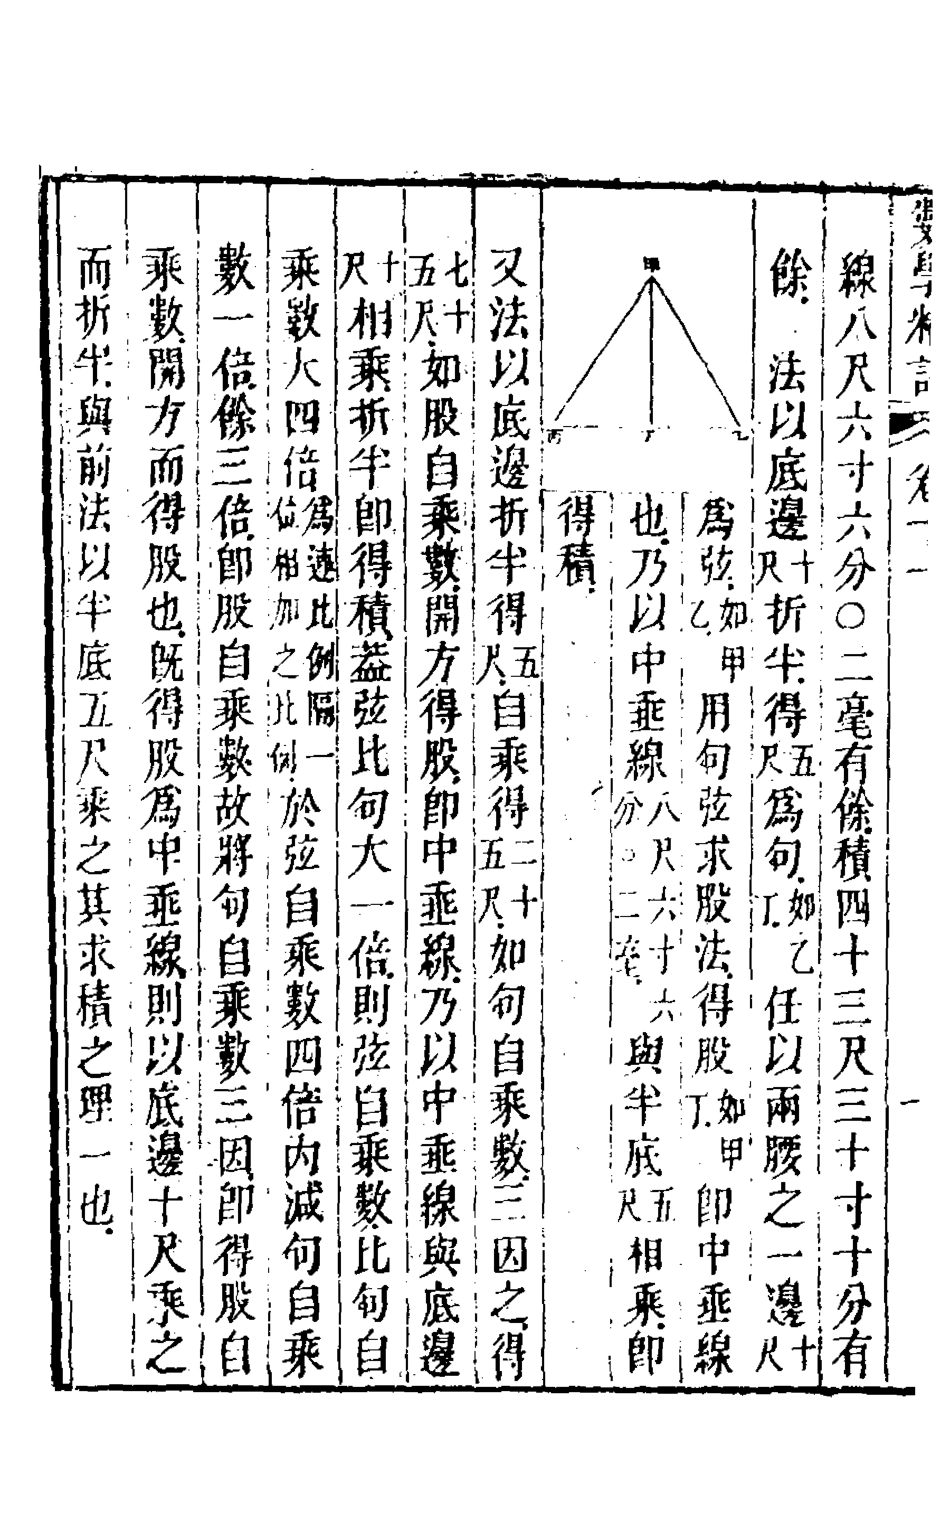 線八尺六寸六分〇二毫有餘積四十三尺三十寸十分有
餘 法以底邊十尺折半得五尺爲句如乙丁任以兩腰之一邊十尺
爲弦如甲乙用句弦求股法得股如甲丁卽中垂線
也乃以中垂線八尺六寸六分〇二毫與半底五尺相乘卽
得積
甲
丙 丁 乙
又法以底邊折半得五尺自乘得二十五尺如句自乘數三因之得
七十五尺如股自乘數開方得股卽中垂線乃以中垂線與底邊
十尺相乘折半卽得積葢弦比句大一倍則弦自乘數比句自
乘數大四倍爲連比例隔一位相加之比例於弦自乘數四倍內減句自乘
數一倍餘三倍卽股自乘數故將句自乘數三因卽得股自
乘數開方而得股也旣得股爲中垂線則以底邊十尺乘之
而折半與前法以半底五尺乘之其求積之理一也
數學精詳 卷十一
一